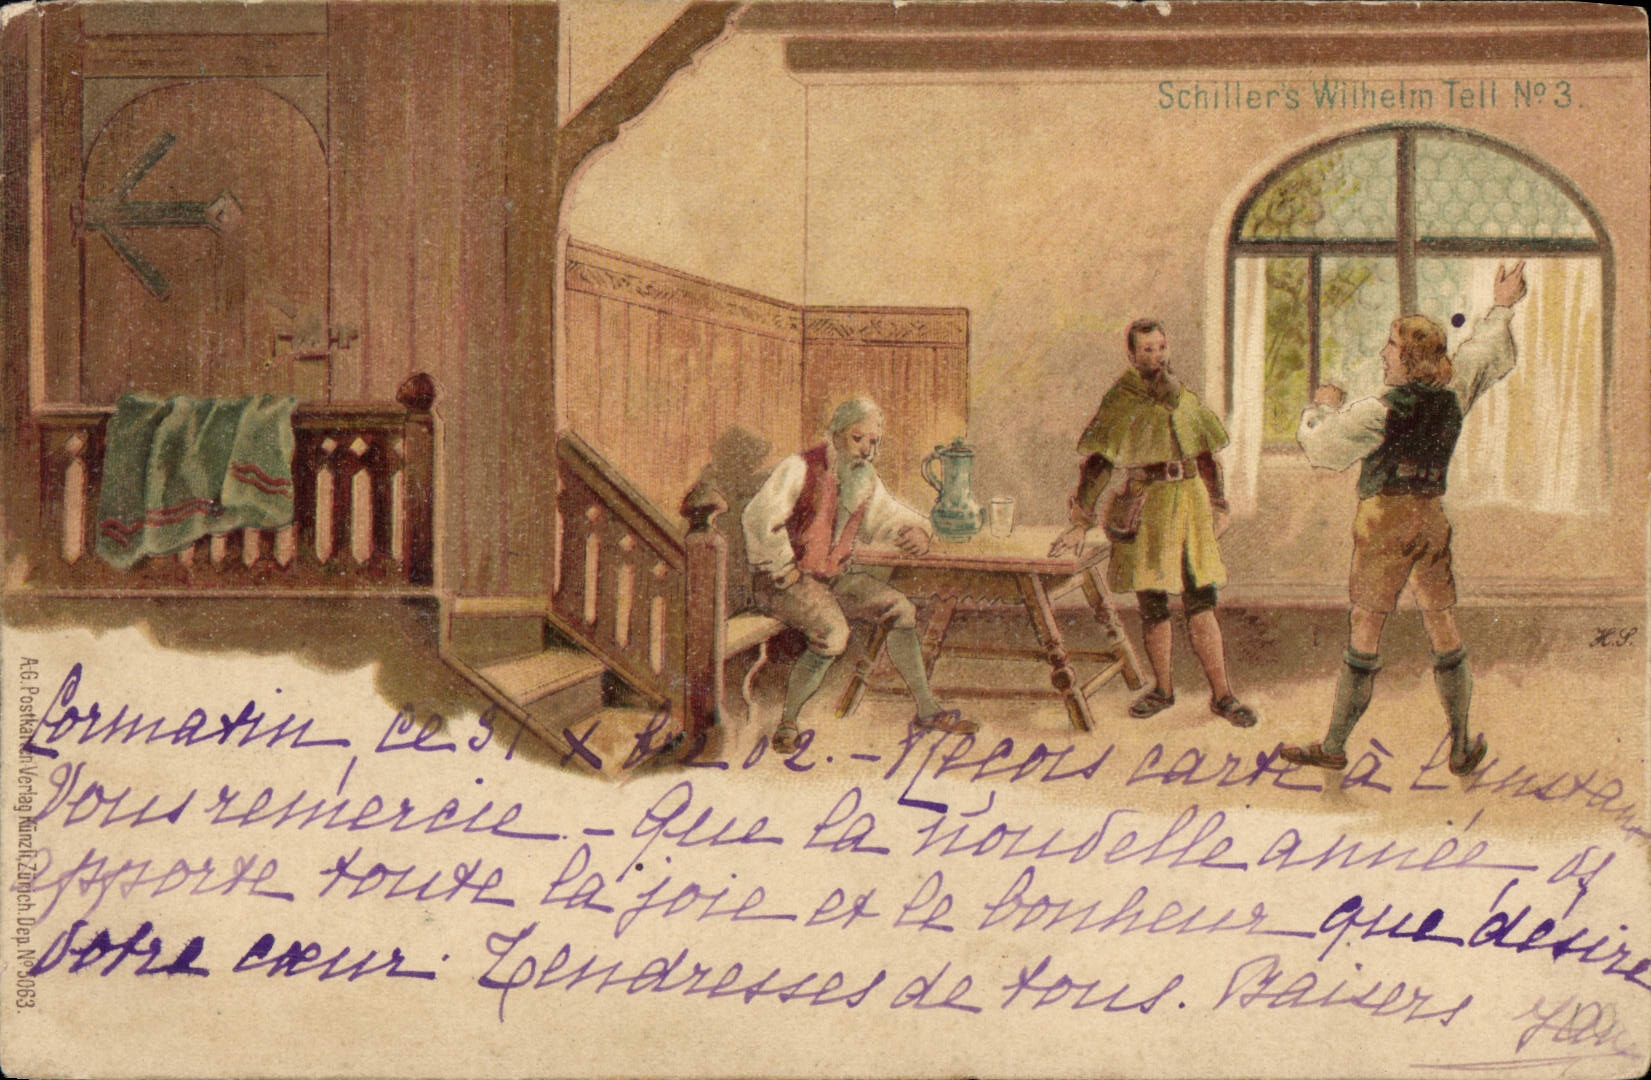 Schiller's Wilhelm Tell Nº 3.
H.S.
A.G. Postkarten-Verlag Künzli, Zürich. Dep. Nº 5063.
Cormatin, ce 31 Xbre 02. - Reçois carte à l'instant
Vous remercie. - Que la nouvelle année vs
apporte toute la joie et le bonheur que désire
votre cœur. Tendresses de tous. Baisers